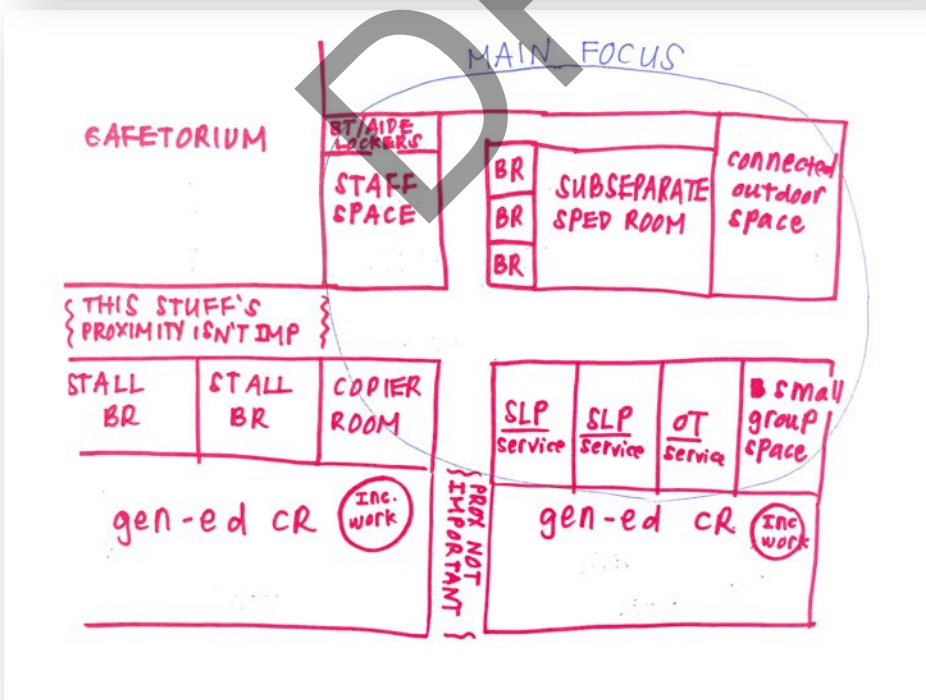 MAIN FOCUS
CAFETORIUM
BT/AIDE
LOCKERS
STAFF
SPACE
BR
BR
BR
SUBSEPARATE
SPED ROOM
connected
outdoor
space
THIS STUFF'S
PROXIMITY ISN'T IMP
STALL
BR
STALL
BR
COPIER
ROOM
SLP
service
SLP
service
OT
service
small
group
space
gen-ed CR
Inc.
work
PROX NOT
IMPORTANT
gen-ed CR
Inc
work